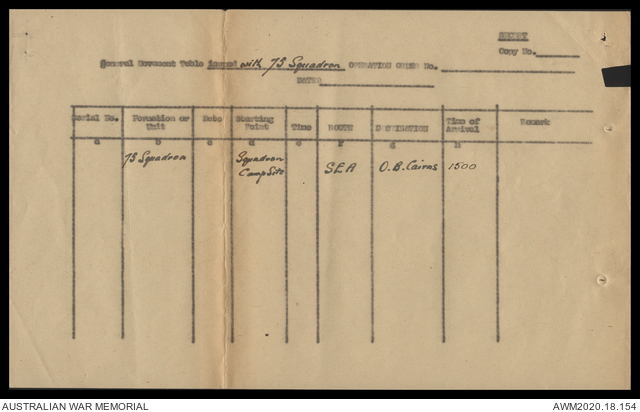 SECRET
Copy No.
General Movement Table issued with 75 Squadron OPERATION ORDER No.
DATED
Serial No. Formation or Unit Date Starting Point Time ROUTE DESTINATION Time of Arrival Remark
a b c d e f g h
75 Squadron Squadron Camp Site SEA O.B. Cairns 1500
AUSTRALIAN WAR MEMORIAL AWM2020.18.154